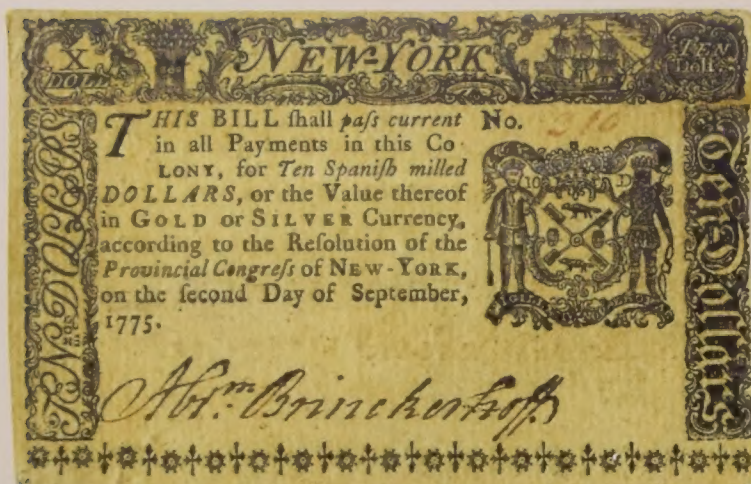 X
DOLL
NEW-YORK.
TEN
Doll
THIS BILL ſhall paſs current
in all Payments in this Co
LONY, for Ten Spaniſh milled
DOLLARS, or the Value thereof
in GOLD or SILVER Currency,
according to the Reſolution of the
Provincial Congreſs of NEW-YORK,
on the ſecond Day of September,
1775.
No. 310
10 D
TEN DOLLARS
Ten Dollars
Abrm. Brinckerhoff